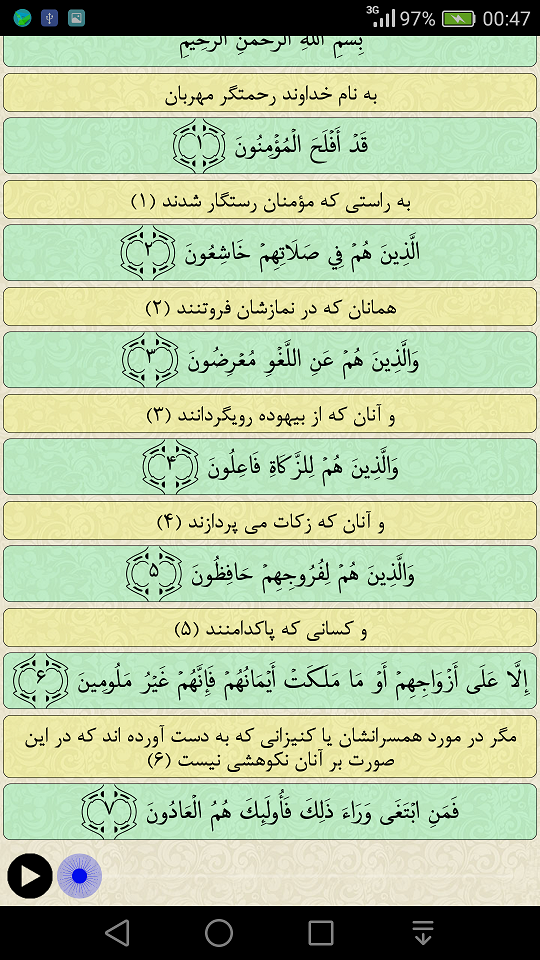 3G 97% 00:47
بِسْمِ اللَّهِ الرَّحْمَنِ الرَّحِيمِ
به نام خداوند رحمتگر مهربان
قَدْ أَفْلَحَ الْمُؤْمِنُونَ ﴿۱﴾
به راستی که مؤمنان رستگار شدند (۱)
الَّذِينَ هُمْ فِي صَلَاتِهِمْ خَاشِعُونَ ﴿۲﴾
همانان که در نمازشان فروتنند (۲)
وَالَّذِينَ هُمْ عَنِ اللَّغْوِ مُعْرِضُونَ ﴿۳﴾
و آنان که از بیهوده رویگردانند (۳)
وَالَّذِينَ هُمْ لِلزَّكَاةِ فَاعِلُونَ ﴿۴﴾
و آنان که زکات می پردازند (۴)
وَالَّذِينَ هُمْ لِفُرُوجِهِمْ حَافِظُونَ ﴿۵﴾
و کسانی که پاکدامنند (۵)
إِلَّا عَلَى أَزْوَاجِهِمْ أَوْ مَا مَلَكَتْ أَيْمَانُهُمْ فَإِنَّهُمْ غَيْرُ مَلُومِينَ ﴿۶﴾
مگر در مورد همسرانشان یا کنیزانی که به دست آورده اند که در این
صورت بر آنان نکوهشی نیست (۶)
فَمَنِ ابْتَغَى وَرَاءَ ذَلِكَ فَأُولَئِكَ هُمُ الْعَادُونَ ﴿۷﴾